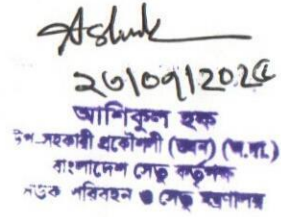 Ashik
২৩/০৭/২০২৫
আশিকুল হক
উপ-সহকারী প্রকৌশলী (ভবন) (অ.দা.)
বাংলাদেশ সেতু কর্তৃপক্ষ
সড়ক পরিবহন ও সেতু মন্ত্রণালয়